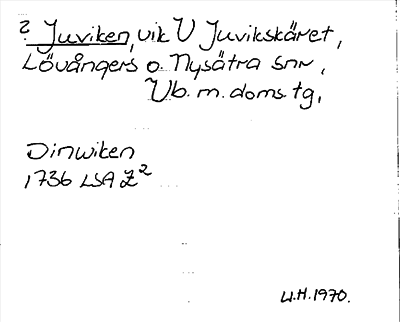 ? Juviken, vik V Juvikskäret,
Lövångers o. Nysätra snr,
Vb. m. doms. tg,
Dinwiken
1736 LSA Z²
U.H. 1970.